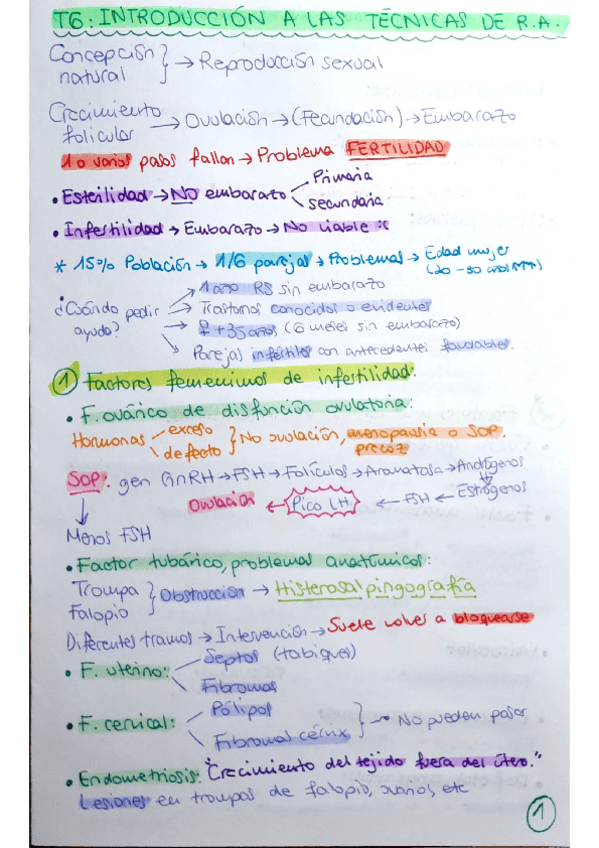 T6: INTRODUCCIÓN A LAS TÉCNICAS DE R.A.
Concepción natural } → Reproducción sexual
Crecimiento folicular → Ovulación → (Fecundación) → Embarazo
1 o varios pasos fallan → Problema FERTILIDAD
• Esterilidad → NO embarazo < Primaria
secundaria
• Infertilidad → Embarazo → No viable :c
* 15% Población → 1/6 parejas → Problemas → Edad mujer
¿Cuándo pedir ayuda?
→ 1 año RS sin embarazo
→ Trastornos conocidos o evidentes
→ ♀ +35 años (6 meses sin embarazo)
→ Parejas infértiles con antecedentes favorables.
① Factores femeninos de infertilidad:
• F. ovárico de disfunción ovulatoria:
Hormonas < exceso
defecto } No ovulación, menopausia o SOP.
precoz
SOP: gen GnRH → FSH → Folículos → Aromatasa → Andrógenos
Ovulación ← Pico LH ← FSH ← Estrógenos
↓
Menos FSH
• Factor tubárico, problemas anatómicos:
Trompa Falopio } Obstrucción → Histerosalpingografía
Diferentes tramos → Intervención → Suele volver a bloquearse
• F. uterino: < Septos (tabiques)
Fibromas
• F. cervical: < Pólipos
Fibromas cérvix } → No pueden pasar
• Endometriosis: "Crecimiento del tejido fuera del útero."
Lesiones en trompas de falopio, ovarios, etc
1